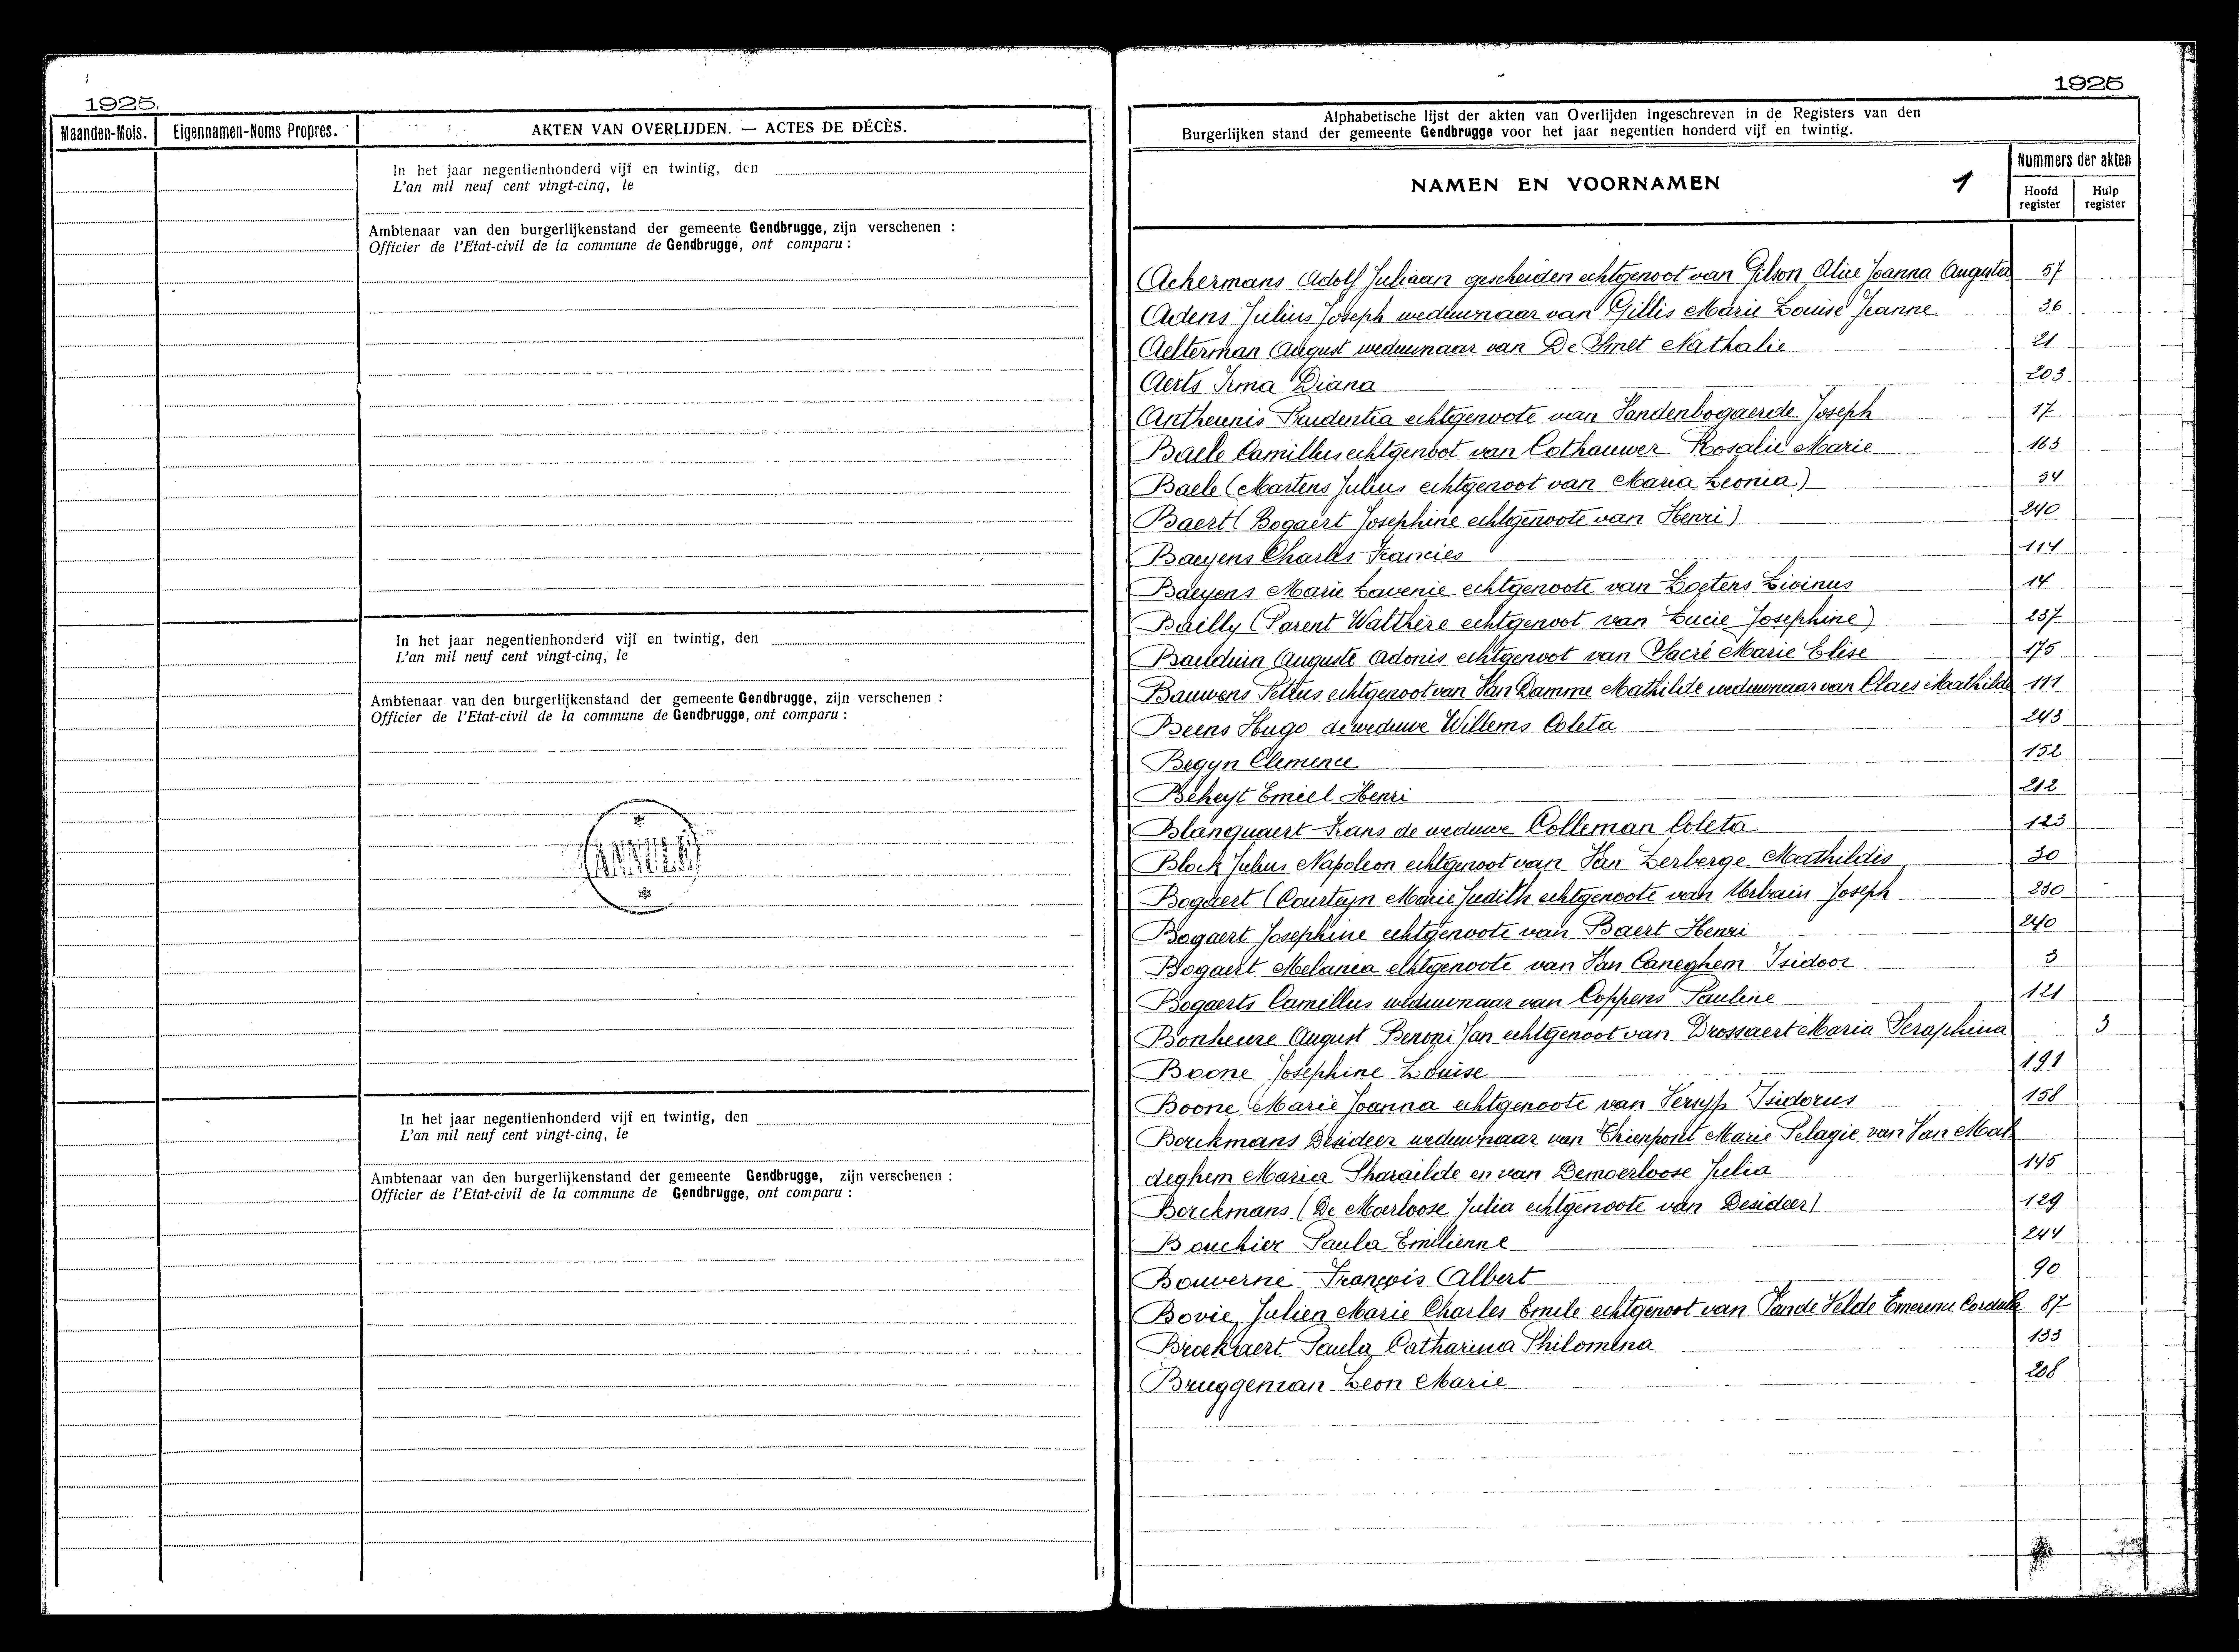 1925.
Maanden-Mois. Eigennamen-Noms Propres. AKTEN VAN OVERLIJDEN. — ACTES DE DÉCÈS.
In het jaar negentienhonderd vijf en twintig, den
L'an mil neuf cent vingt-cinq, le
Ambtenaar van den burgerlijkenstand der gemeente Gendbrugge, zijn verschenen :
Officier de l'Etat-civil de la commune de Gendbrugge, ont comparu :
In het jaar negentienhonderd vijf en twintig, den
L'an mil neuf cent vingt-cinq, le
Ambtenaar van den burgerlijkenstand der gemeente Gendbrugge, zijn verschenen :
Officier de l'Etat-civil de la commune de Gendbrugge, ont comparu :
In het jaar negentienhonderd vijf en twintig, den
L'an mil neuf cent vingt-cinq, le
Ambtenaar van den burgerlijkenstand der gemeente Gendbrugge, zijn verschenen :
Officier de l'Etat-civil de la commune de Gendbrugge, ont comparu :
1925
Alphabetische lijst der akten van Overlijden ingeschreven in de Registers van den
Burgerlijken stand der gemeente Gendbrugge voor het jaar negentien honderd vijf en twintig.
NAMEN EN VOORNAMEN 1
Nummers der akten
Hoofd register Hulp register
Ackermans Adolf Juliaan gescheiden echtgenoot van Gilson Alice Joanna Augusta 57
Adens Julius Joseph weduwnaar van Gillis Marie Louise Jeanne 36
Aelterman August weduwnaar van De Smet Nathalie 21
Aerts Irma Diana 203
Antheunis Prudentia echtgenoote van Vandenbogaerde Joseph 17
Baele Camillus echtgenoot van Cothauwer Rosalie Marie 163
Baele (Martens Julius echtgenoot van Maria Leonia) 34
Baert (Bogaert Josephine echtgenoote van Henri) 240
Baeyens Charles Francies 114
Baeyens Marie Lavenie echtgenoote van Zoetens Livinus 14
Bailly (Parent Walthère echtgenoot van Lucie Josephine) 237
Bauduin Auguste Adonis echtgenoot van Sacré Marie Elise 175
Bauwens Petrus echtgenoot van Van Damme Mathilde weduwnaar van Claes Mathilde 111
Beens Hugo de weduwe Willems Coleta 243
Begyn Clemence 152
Beheyt Emiel Henri 212
Blanquaert Frans de weduwe Colleman Coleta 123
Block Julius Napoleon echtgenoot van Van Zerberge Mathildis 30
Bogaert (Courteyn Marie Judith echtgenoote van Urbain Joseph 230
Bogaert Josephine echtgenoote van Baert Henri 240
Bogaert Melania echtgenoote van Van Caneghem Isidoor 3
Bogaerts Camillus weduwnaar van Coppens Pauline 121
Bonheure August Benoni Jan echtgenoot van Drossaert Maria Seraphina 3
Boone Josephine Louise 191
Boone Marie Joanna echtgenoote van Versyp Isidorus 158
Borckmans Desideer weduwnaar van Thienpont Marie Pelagie, van Van Mal
deghem Maria Pharailde en van Demoerloose Julia 145
Borckmans (De Moerloose Julia echtgenoote van Desideer) 129
Bouchier Paula Emilienne 244
Bouverne François Albert 90
Bovie Julien Marie Charles Emile echtgenoot van Vande Velde Emerence Cordula 87
Broekaert Paula Catharina Philomena 133
Bruggeman Leon Marie 208